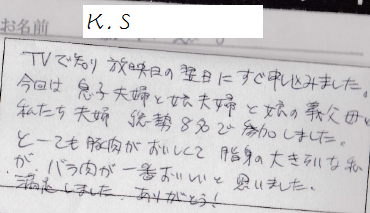 お名前
K.S
TVで知り放映日の翌日にすぐ申し込みました。
今回は息子夫婦と娘夫婦と娘の義父母と
私たち夫婦 総勢8名で参加しました。
とーても豚肉がおいしくて 脂身の大きらいな私
が バラ肉が一番おいしいと思いました。
満足しました。ありがとう!